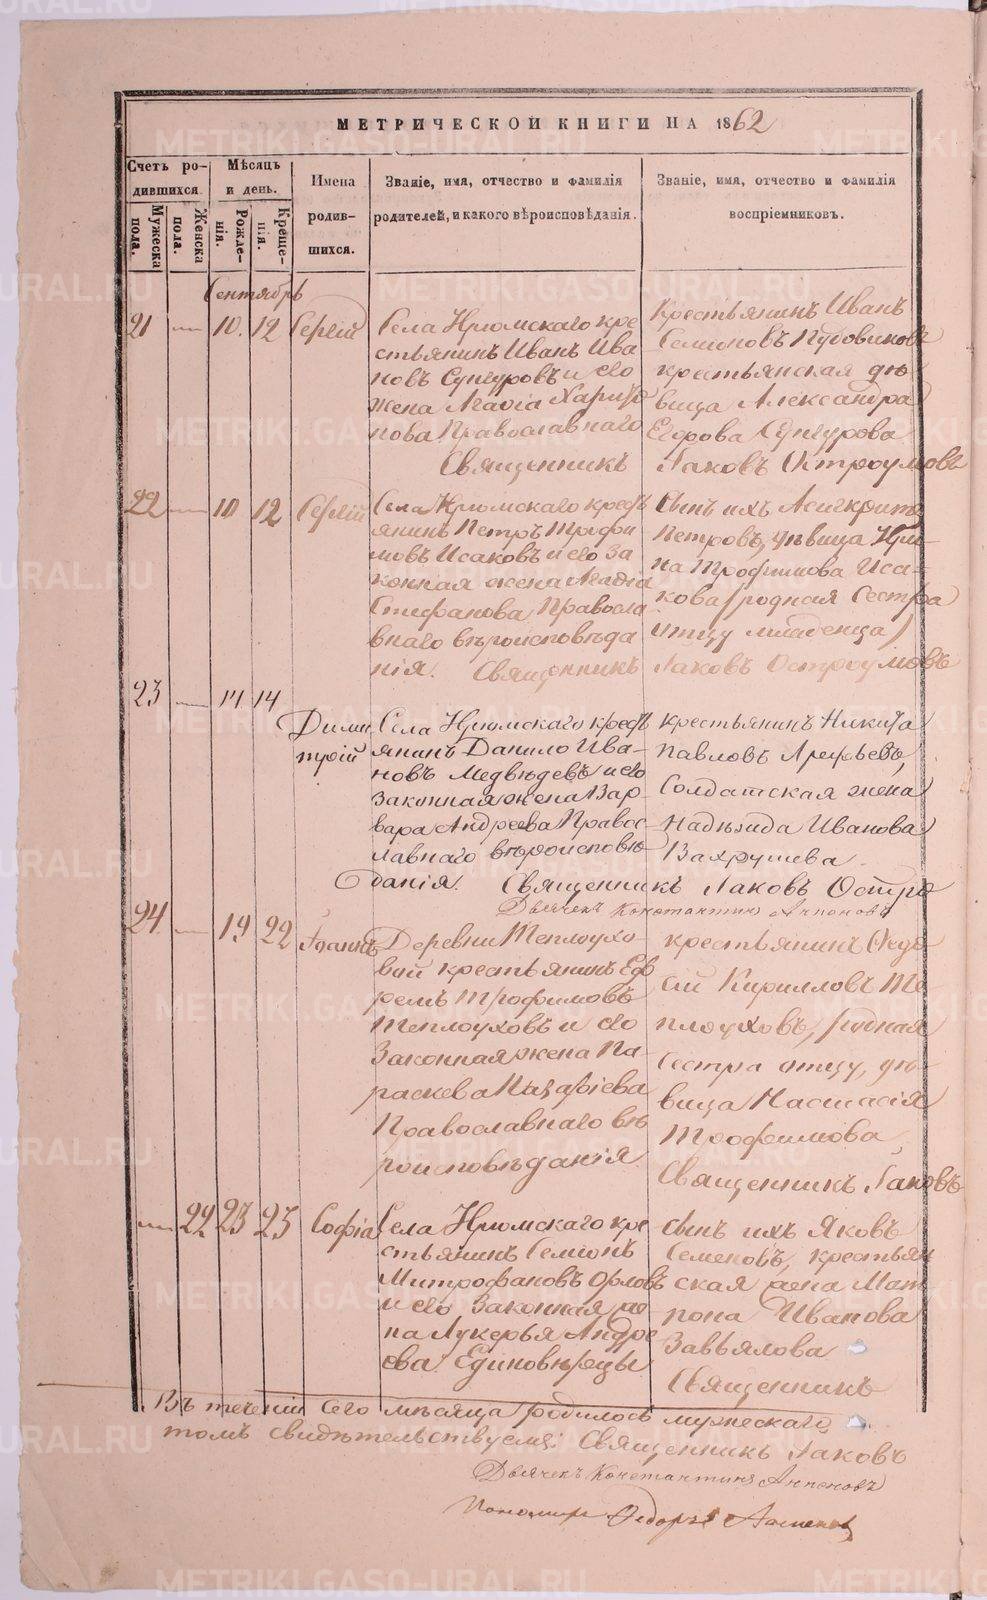 МЕТРИЧЕСКОЙ КНИГИ НА 1862
Счетъ ро-
дившихся.
Мѣсяцъ
и день.
Мужеска
пола.
Женска
пола.
Рожде-
нія.
Креще-
нія.
Имена
родив-
шихся.
Званіе, имя, отчество и фамилія
родителей, и какого вѣроисповѣданія.
Званіе, имя, отчество и фамилія
воспріемниковъ.
Сентябрь
21 — 10. 12 Сергій
Села Нрюмскаго кре
стьянинъ Иванъ Ива
новъ Сунгуровъ и его
жена Агафія Харито
нова Православнаго
Священникъ
Крестьянинъ Иванъ
Семіоновъ Пудовиковъ
крестьянская дѣ
вица Александра
Егорова Сунгурова
Іаковъ Остроумовъ
22 — 10 12 Сергій
Села Нрюмскаго кресть
янинъ Петръ Трофи
мовъ Исаковъ и его за
конная жена Агафія
Стифанова Правосла
внаго вѣроисповѣда
нія. Священникъ
Сынъ ихъ Асигкритъ
Петровъ, дѣвица Ири
на Трофимова Иса-
кова (родная сестра
отцу младенца)
Іаковъ Остроумовъ
23 — 14 14
Дими
трій
Села Нрюмскаго кресть
янинъ Данило Ива-
новъ Медвѣдевъ и его
законная жена Вар
вара Андреева Правос
лавнаго вѣроисповѣ
данія. Священникъ Іаковъ Остро
крестьянинъ Никита
Павловъ Арефьевъ,
Солдатская жена
Надѣжда Иванова
Вахрушева
Дьячекъ Константинъ Антоновъ
24. — 19 22 Іоаннъ
Деревни Теплоухо
вой крестьянинъ Еф
ремъ Трофимовъ
Теплоуховъ и его
Законная жена Па-
раскева
Православнаго вѣ
роисповѣданія
крестьянинъ Ѳедо
сій Кирилловъ Те
плоуховъ, родная
сестра отцу, дѣ-
вица Настасія
Трофимова
Священникъ Іаковъ
— 22 23 23 Софія
Села Нрюмскаго кре
стьянинъ Семіонъ
Митрофановъ Орловъ
и его Законная же
на Лукерья Андре
ева Единовѣрцы
сынъ ихъ Яковъ
Семеновъ, крестьян
ская жена Мат
рона Иванова
Завьялова
Священникъ
Въ теченіи сего мѣсяца родилось мужескаго
томъ свидѣтельствуемъ: Священникъ Іаковъ
Дьячекъ Константинъ Антоновъ
Пономарь Ѳедоръ
METRIKI.GASO-URAL.RU